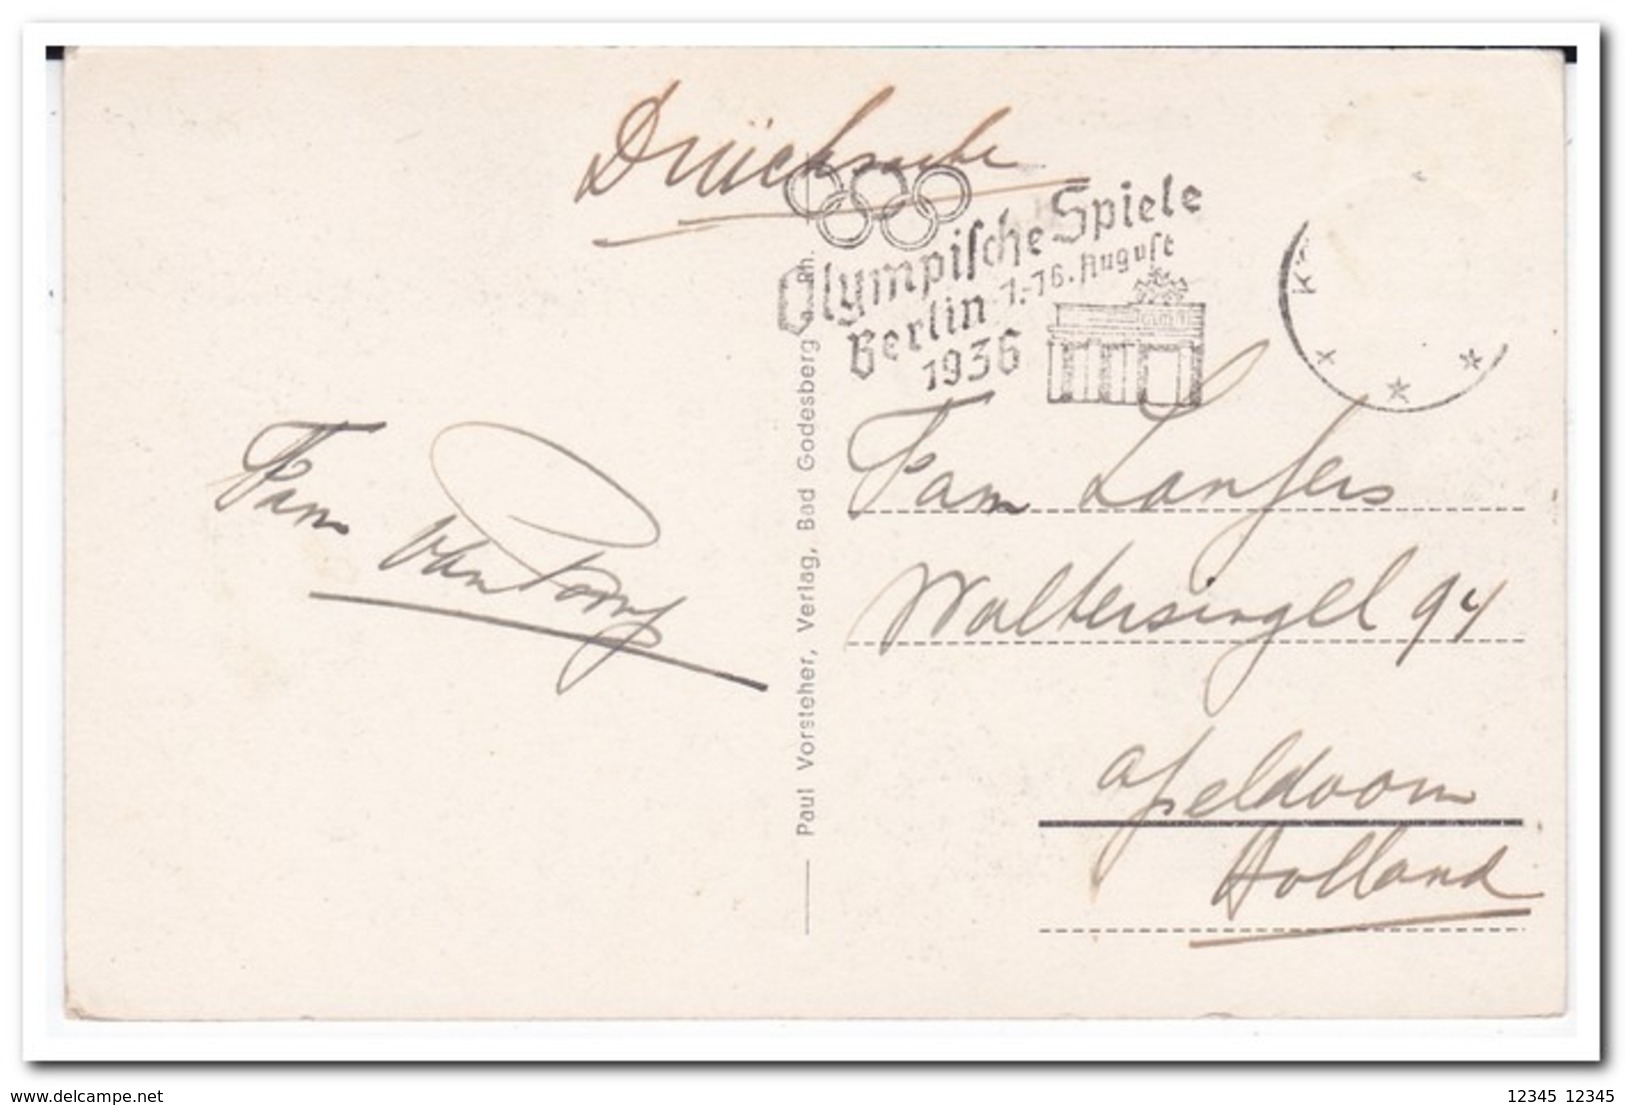 Drücksache
Olympische Spiele
Berlin 1.-16. August
1936
K
Fam
Fam Lanfers
Waltersingel 94
Apeldoorn
Holland
Paul Vorsteher, Verlag, Bad Godesberg a. Rh.
delcampe.net
12345 12345